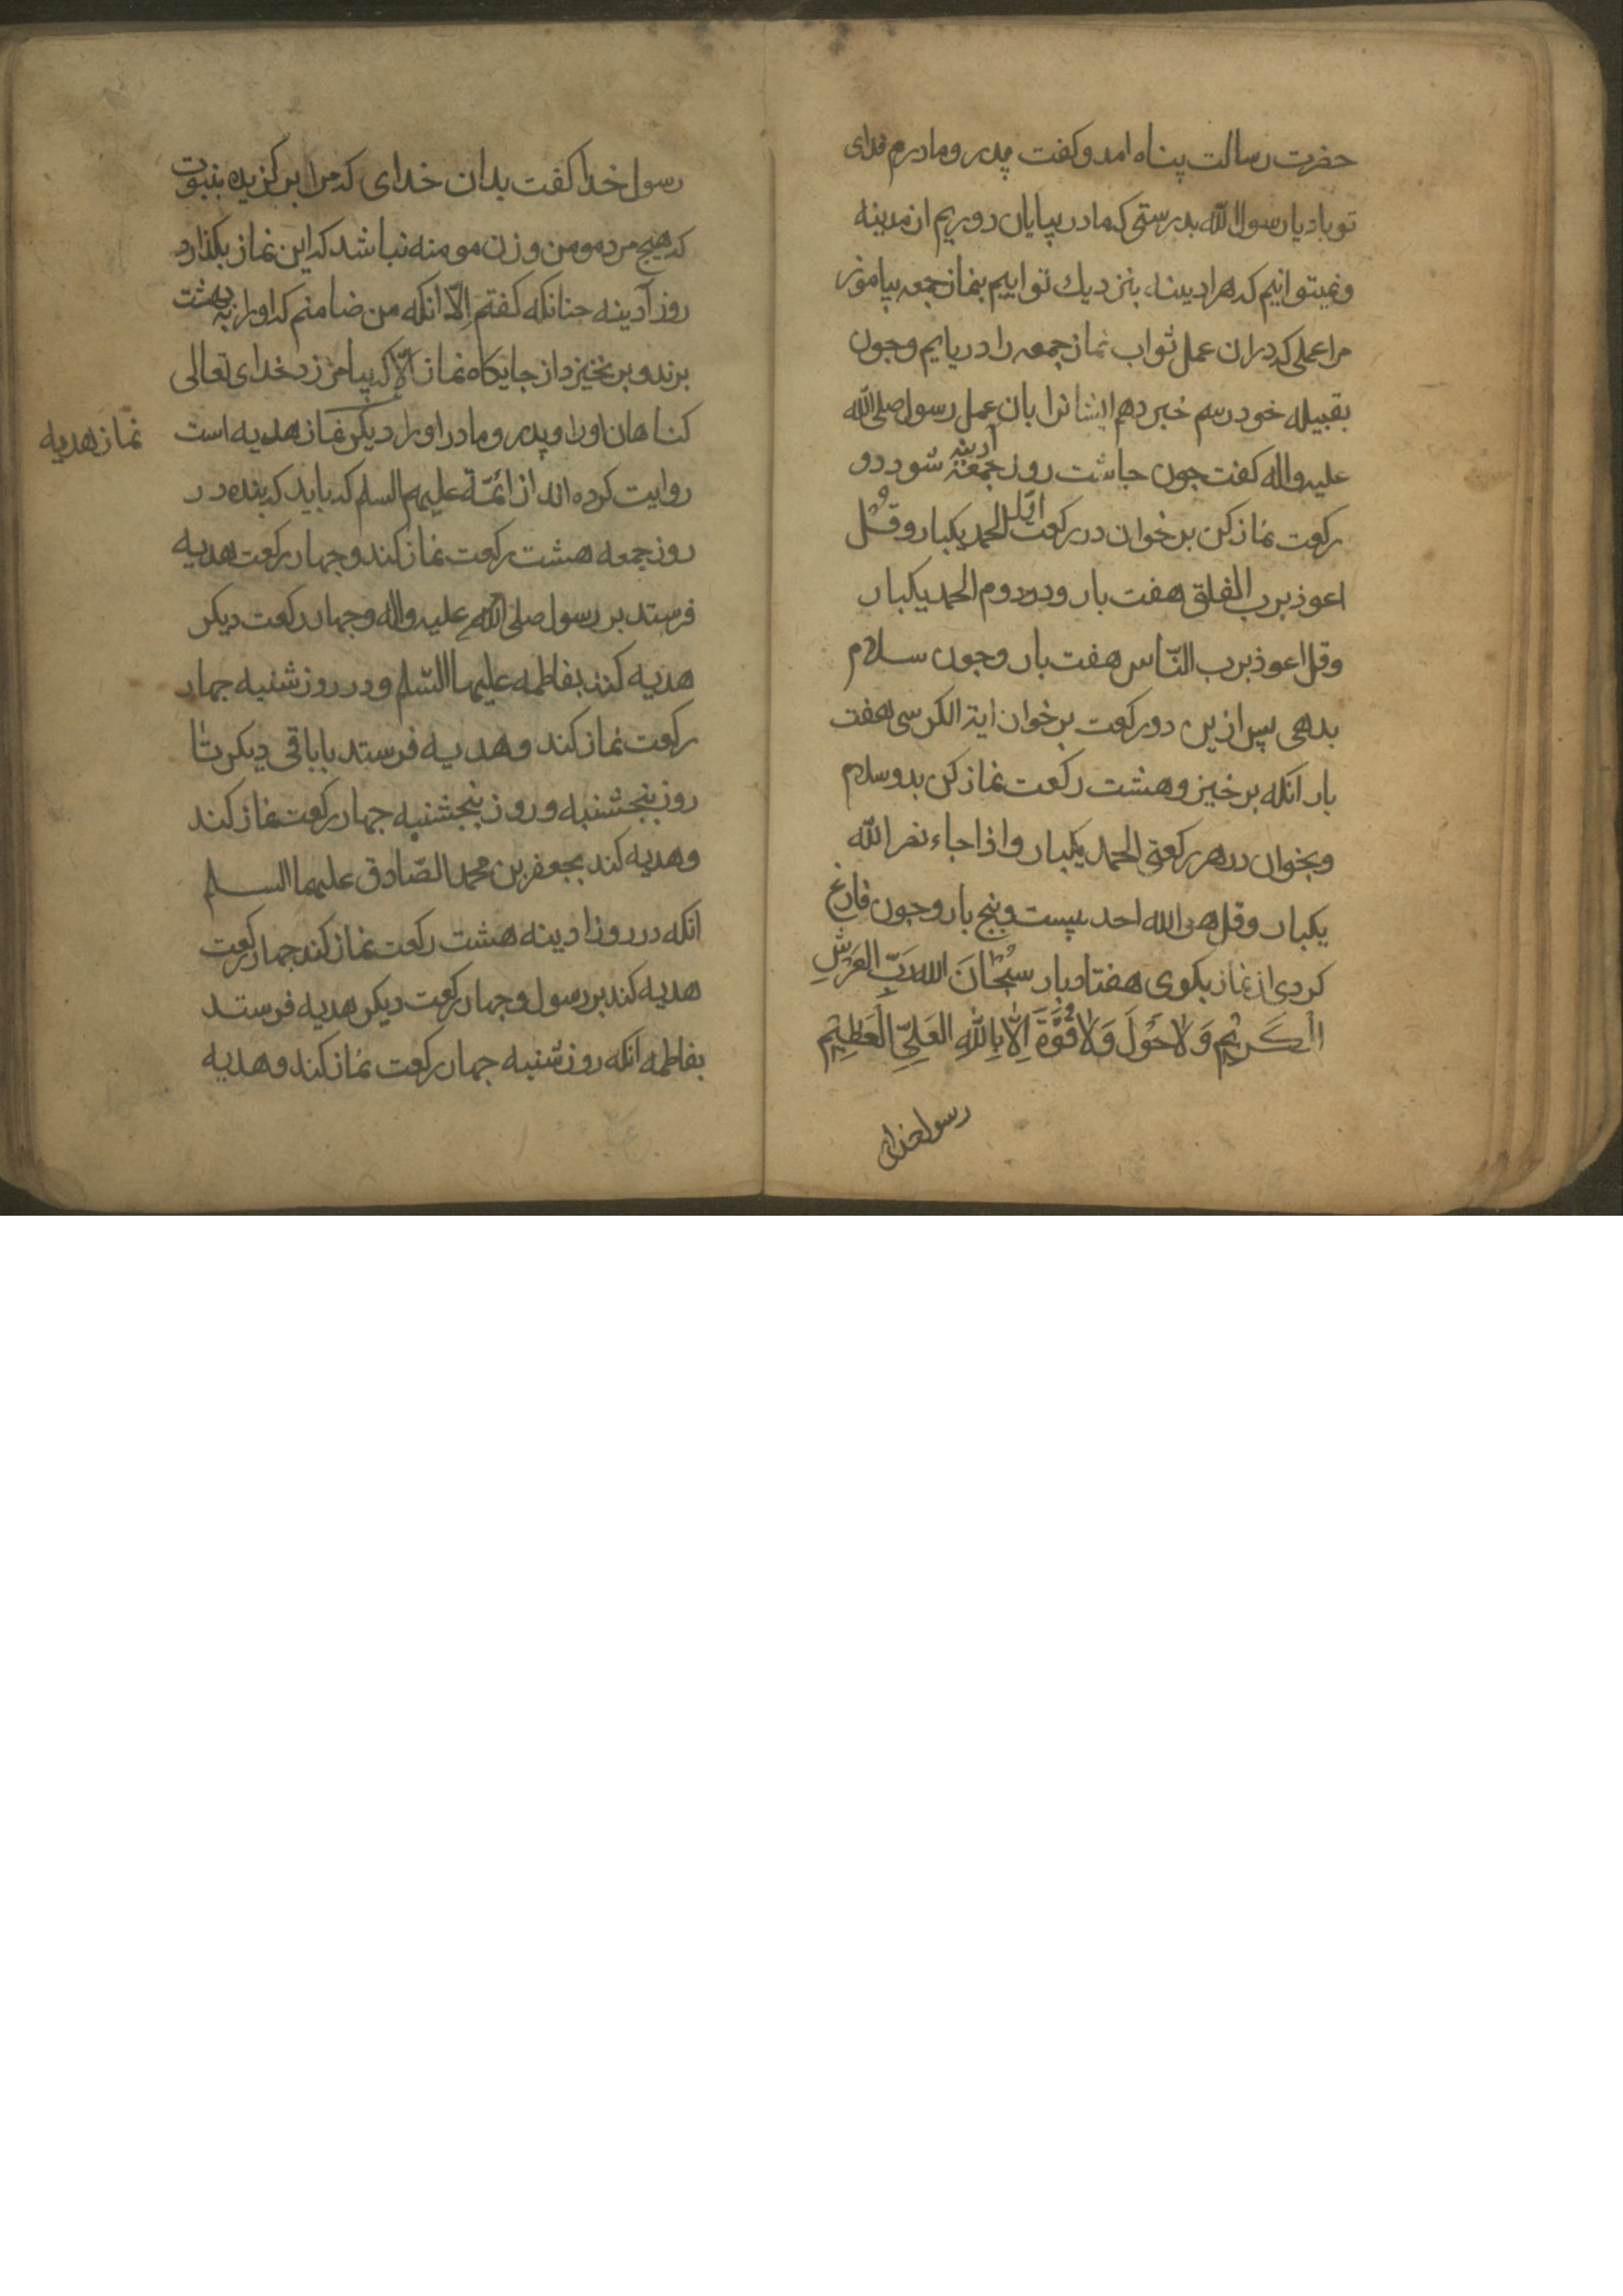 حضرت رسالت پناه امد و کفت پدر و مادرم فدای
تو باد یا رسول الله بدرستی که ما در بیابان دوریم از مدینه
و نمیتوانیم که هر ادینه بنزدیک تو اییم بنماز جمعه بیاموز
مرا عملی که در ان عمل ثواب نماز جمعه را دریابم و جون
بقبیله خود رسم خبر دهم ایشانرا بان عمل رسول صلی الله
علیه واله کفت جون جاشت روز جمعه آدینه شود دو
رکعت نماز کن بر خوان در رکعت اول الحمد یکبار و قل
اعوذ برب الفلق هفت بار و در دوم الحمد یکبار
و قل اعوذ برب النّاس هفت بار و جون سلام
بدهی پس ازین دو رکعت بر خوان ایة الکرسی هفت
بار انکه بر خیز و هشت رکعت نماز کن بدو سلام
و بخوان در هر رکعتی الحمد یکبار و اذا جاء نصر الله
یکبار و قل هو الله احد بیست و پنج بار و جون فارغ
کردی از نماز بکوی هفتاد بار سُبْحٰانَ الله رَبِّ العَرْشِ
الْکَرِیْمِ وَلٰا حَوْلَ وَلٰا قُوَّةَ اِلّٰا بِاللّٰهِ العَلِیِّ الْعَظِیْمِ
رسول خدای
رسول خدا کفت بدان خدای که مرا بر کزیده بنبوت
که هیج مرد مومن و زن مومنه نباشد که این نماز بکذارد
روز آدینه جنانکه کفتم اِلّا انکه من ضامنم که او را به بهشت
برند و بر نخیزد از جایکاه نماز اِلّا که بیامرزد خدای تعالی
کناهان او را و پدر و مادر او را دیکر نماز هدیه است
نماز هدیه
روایت کرده اند از ائمّة علیهم السلم که باید که بنده در
روز جمعه هشت رکعت نماز کند و جهار رکعت هدیه
فرستد بر رسول صلی الله علیه واله و جهار رکعت دیکر
هدیه کند بفاطمه علیها السّلم و در روز شنبه جهار
رکعت نماز کند و هدیه فرستد بباقی دیکر تٰا
روز پنجشنبه و روز پنجشنبه جهار رکعت نماز کند
و هدیه کند بجعفر بن محمد الصّادق علیهما السلم
انکه در روز ادینه هشت رکعت نماز کند جهار رکعت
هدیه کند بر رسول و جهار رکعت دیکر هدیه فرستد
بفاطمه انکه روز شنبه جهار رکعت نماز کند و هدیه